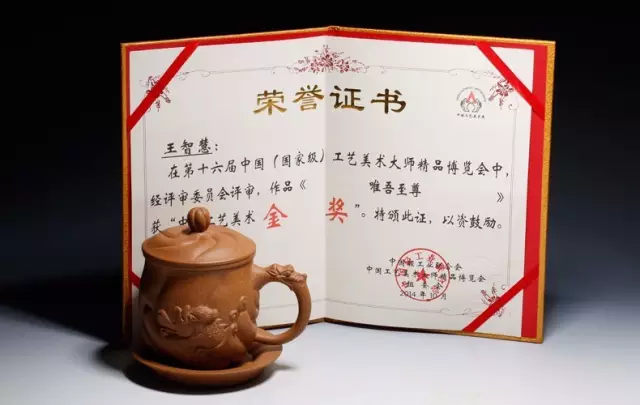 荣誉证书
王智慧：
在第十六届中国（国家级）工艺美术大师精品博览会中，
经评审委员会评审，作品《 唯吾至尊 》
获“中 工艺美术 金 奖”。特颁此证，以资鼓励。
中国轻工业联合会
中国工艺美术大师精品博览会
组委会
2014年10月